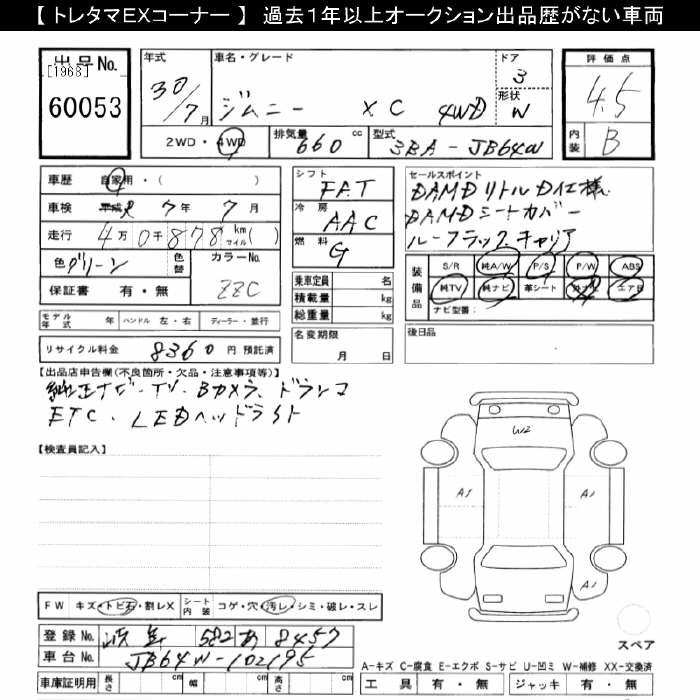 【 トレタマEXコーナー 】 過去1年以上オークション出品歴がない車両
出品No. [1968] 60053
年式 30/7月
車名・グレード ジムニー XC 4WD
ドア 3
形状 W
評価点 4.5
内装 B
2WD・4WD 排気量 660 cc 型式 3BA-JB64W
車歴 自家用・( )
車検 平成 R 7年 7月
走行 4万0千878 km マイル ( )
色 グリーン 色替 カラーNo. ZZC
保証書 有・無
モデル年式 年 ハンドル 左・右 ディーラー・並行
リサイクル料金 8360 円 預託済
シフト FAT
冷房 AAC
燃料 G
乗車定員 名
積載量 kg
総重量 kg
名変期限 月 日
セールスポイント
DAMDリトルD仕様
DAMDシートカバー
ルーフラックキャリア
装備品 S/R 純A/W P/S P/W ABS
純TV 純ナビ 革シート エアB
ナビ型番:
後日品
【出品店申告欄(不良箇所・欠品・注意事項等)】
純正ナビ・TV・Bカメラ、ドラレコ
ETC・LEDヘッドライト
【検査員記入】
W2
A1 A1
A1
FW キズ・トビ石・割レX シート内装 コゲ・穴・汚レ・シミ・破レ・スレ
登録No. 582 あ 8457
車台No. JB64W-102195
車庫証明用 長さ cm 幅 cm 高さ cm
スペア
A-キズ C-腐食 E-エクボ S-サビ U-凹ミ W-補修 XX-交換済
工具 有・無 ジャッキ 有・無